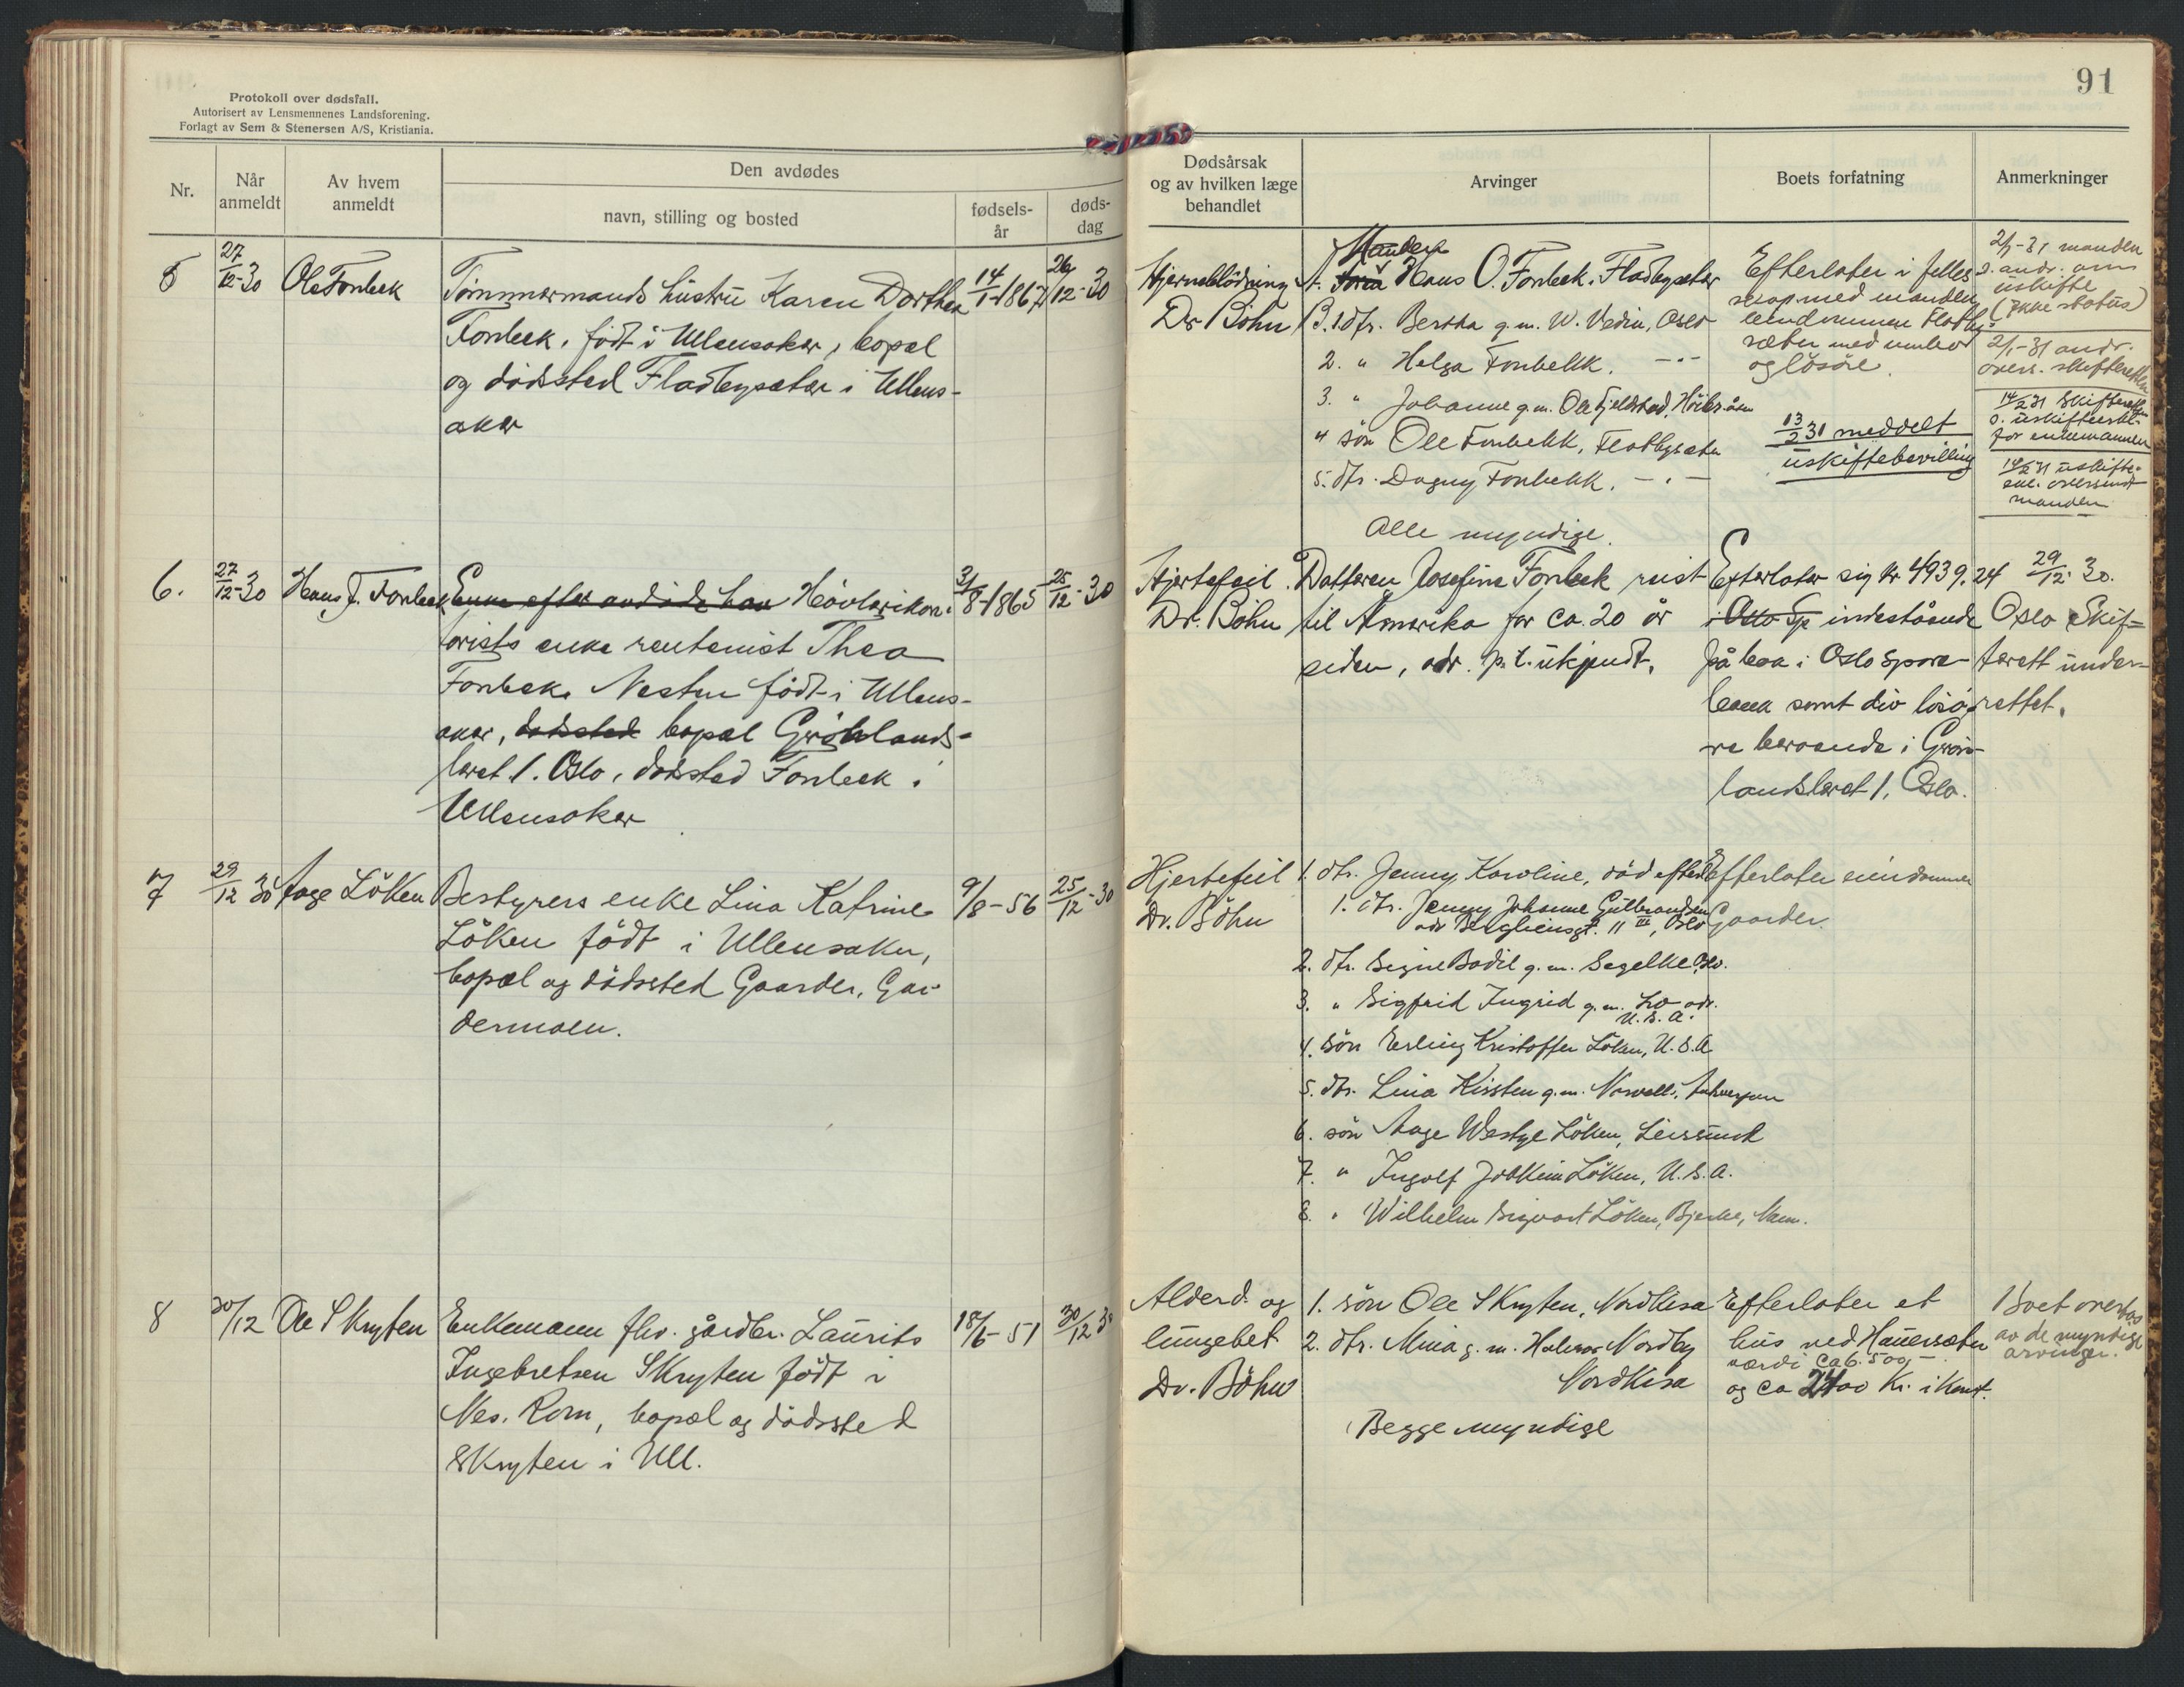 Protokoll over dødsfall.
Autorisert av Lensmennenes Landsforening.
Forlagt av Sem & Stenersen A/S, Kristiania.
Nr.
Når anmeldt
Av hvem anmeldt
Den avdødes
navn, stilling og bosted
fødsels-år
døds-dag
5
27/12-30
Ole Fonbeck
Tømmermands hustru Karen Dorthea
Fonbeck, født i Ullensaker, bopæl
og dødssted Fladbysæter i Ullens-
aker
14/1-1867
26/12-30
6.
27/12-30
Hans J. Fonbeck
Enke efter avdøde
Høvlerikon-
torists enke rentenist Thea
Fonbeck, Nesten født i Ullens-
aker, dødssted bopæl Grønlands-
leret 1. Oslo, dødsted Fonbeck i
Ullensaker
3/8-1865
25/12-30
7
29/12 30
Aage Löken
Bestyrers enke Lina Katrine
Löken född i Ullensaker,
bopæl og dödssted Gaarder, Gar-
dermoen.
9/8-56
25/12-30
8
30/12
Ole Skryten
Enkemann fhv. gårdbr. Laurits
Ingebretsen Skryten född i
Nes. Rom, bopæl og dödssted
Skryten i Ull.
18/6-51
30/12 30
91
Dødsårsak
og av hvilken læge
behandlet
Arvinger
Boets forfatning
Anmerkninger
Hjerneblödning
Dr Bohn
Manden
A. Hans O. Fonbeck, Fladbysæter
B. 1 dtr. Bertha g.m. W. Vedin, Oslo
2. " Helga Fonbekk. -"-
3. " Johanne g.m. Ole Fjeldstad,
4 sön Ole Fonbekk, Flatbysæter
5. dtr. Dagny Fonbekk. -"-
Alle myndige.
Efterlater i felles
skap med manden
eiendommen Flatby-
sæter med
og lösöre.
13/2 31 meddelt
uskiftebevilling
2/1-31 manden
s. andr. om
uskifte
(ikke status)
2/1-31 andr.
overs. skifteretten
14/2 31 Skifteretten
s. uskiftebev.
for enkemannen
14/2 31 uskifte-
bev. oversendt
manden
Hjertefeil.
Dr. Bohn
Datteren Josefine Fonbeck reist
til Amerika for ca. 20 år
siden, adr. p.t. ukjendt.
Efterlater sig kr 4939.24
i Oslo Sp indestående
på boa i Oslo Spare-
bank samt div lösö-
re beroende i Grön-
landsleret 1, Oslo.
29/12-30.
Oslo Skif-
terett under-
rettet.
Hjertefeil
Dr. Böhn
1. dtr. Jenny Karoline, död efterl.
1. dtr. Jenny Johanne Gulbrandsen
adr Bergliensgt. 11 III, Oslo
2. dtr. Signe Bodil g.m. Segelke Oslo.
3. " Sigfrid Ingrid g.m. Lo adr.
U.S.A.
4. sön Erling Kristoffer Löken, U.S.A
5. dtr. Lina Kirsten g.m. Norvalls, Antwerpen
6. sön Aage Westye Löken, Leirsund
7. " Ingolf Joakim Löken, U.S.A.
8. " Wilhelm Sigvart Löken, Bjerke, Nan.
Efterlater eiendommen
Gaarder.
Alderd. og
lungebet
Dr. Böhn
1. sön Ole Skryten, Nordkisa
2. dtr. Mina g.m. Halvor Nordby
Nordkisa
Begge myndige
Efterlater et
hus ved Hauersæter
værdi ca 6.500,-
og ca 2400 Kr. i kont.
Boet overtas
av de myndige
arvinger.